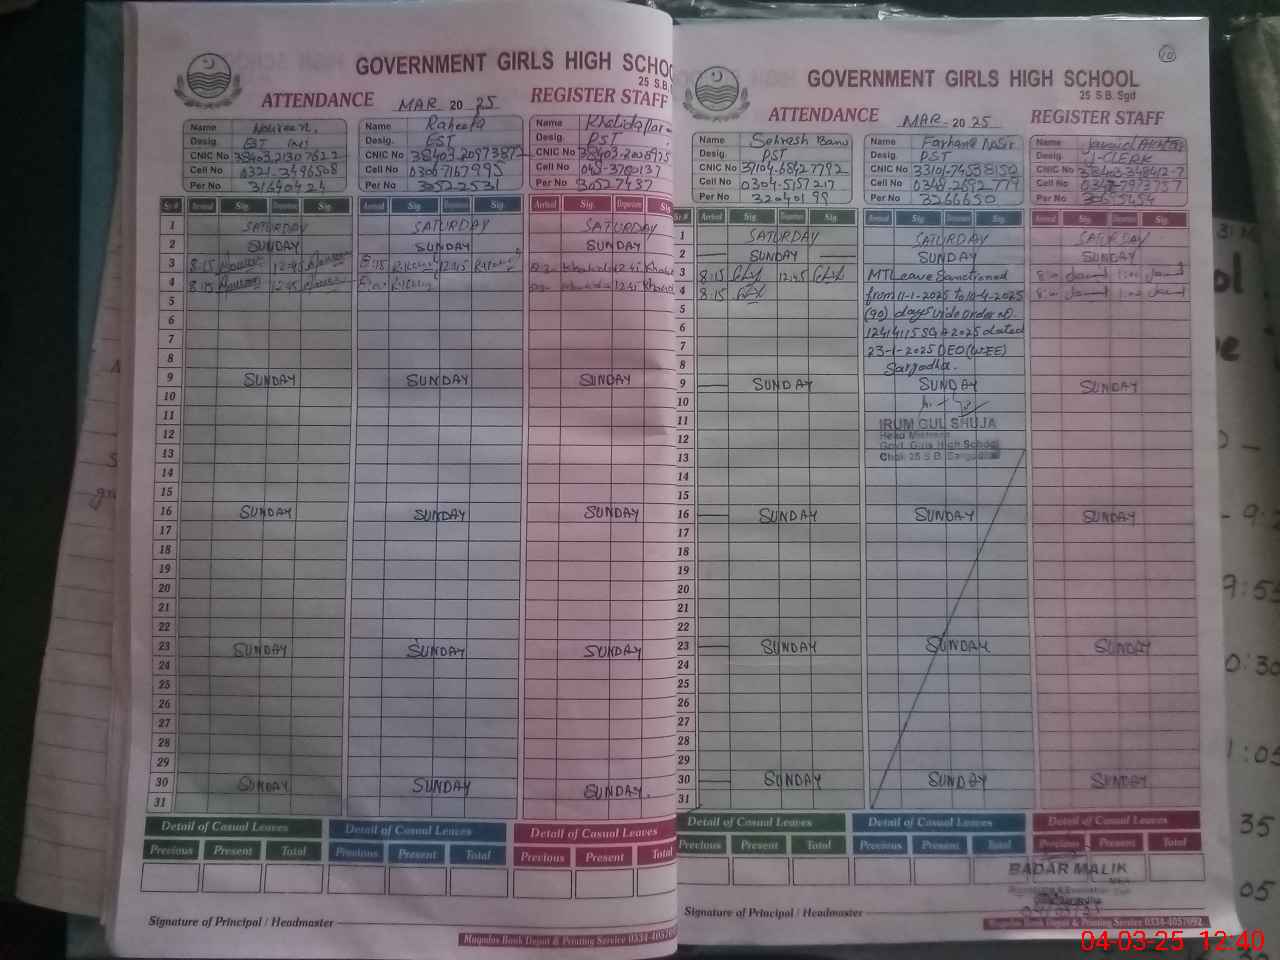 GOVERNMENT GIRLS HIGH SCHOO
25 S.B.
ATTENDANCE MAR 2025 REGISTER STAFF
Name Noureen.
Desig. EST
CNIC No
Cell No 0321.3496508
Per No 31640424
Name Raheela
Desig. EST
CNIC No
Cell No 03067167995
Per No 30522531
Name Khalida
Desig. PST
CNIC No
Cell No
Per No 30527437
Sr.# Arrival Sig. Departure Sig. Arrival Sig. Departure Sig. Arrival Sig. Departure Sig
1 SATURDAY SATURDAY SATURDAY
2 SUNDAY SUNDAY SUNDAY
3 8:15 12:45 8:15 12:45
4 8:15 12:45 12:45
5
6
7
8
9 SUNDAY SUNDAY SUNDAY
10
11
12
13
14
15
16 SUNDAY SUNDAY SUNDAY
17
18
19
20
21
22
23 SUNDAY SUNDAY SUNDAY
24
25
26
27
28
29
30 SUNDAY SUNDAY SUNDAY.
31
Detail of Casual Leaves Detail of Casual Leaves Detail of Casual Leaves
Previous Present Total Previous Present Total Previous Present Total
Signature of Principal / Headmaster
Muqadas Book Depot & Printing Service 0334-4057692
10
GOVERNMENT GIRLS HIGH SCHOOL
25 S.B. Sgd
ATTENDANCE MAR 2025 REGISTER STAFF
Name Sehresh Bano
Desig. PST
CNIC No
Cell No 0304-5157217
Per No 32040199
Name Farhana Nasir
Desig. PST
CNIC No
Cell No 0348-2692779
Per No 3266650
Name Javaid Akhtar
Desig. J-CLERK
CNIC No
Cell No
Per No
Sr.# Arrival Sig. Departure Sig. Arrival Sig. Departure Sig. Arrival Sig. Departure Sig.
1 SATURDAY SATURDAY SATURDAY
2 SUNDAY SUNDAY SUNDAY
3 8:15 12:45 MT Leave Sanctioned
4 8:15 from 11-1-2025 to 10-4-2025
5 (90) days vide order no.
6 dated
7 23-1-2025 DEO(WEE)
8 Sargodha.
9 SUNDAY SUNDAY SUNDAY
10
11 IRUM GUL SHUJA
12 Head Mistress
Govt. Girls High School
13 Chak 25 S.B. Sargodha
14
15
16 SUNDAY SUNDAY SUNDAY
17
18
19
20
21
22
23 SUNDAY SUNDAY SUNDAY
24
25
26
27
28
29
30 SUNDAY SUNDAY SUNDAY
31
Detail of Casual Leaves Detail of Casual Leaves Detail of Casual Leaves
Previous Present Total Previous Present Total Previous Present Total
BADAR MALIK
Signature of Principal / Headmaster
Muqadas Book Depot & Printing Service 0334-4057692
04-03-25 12:40